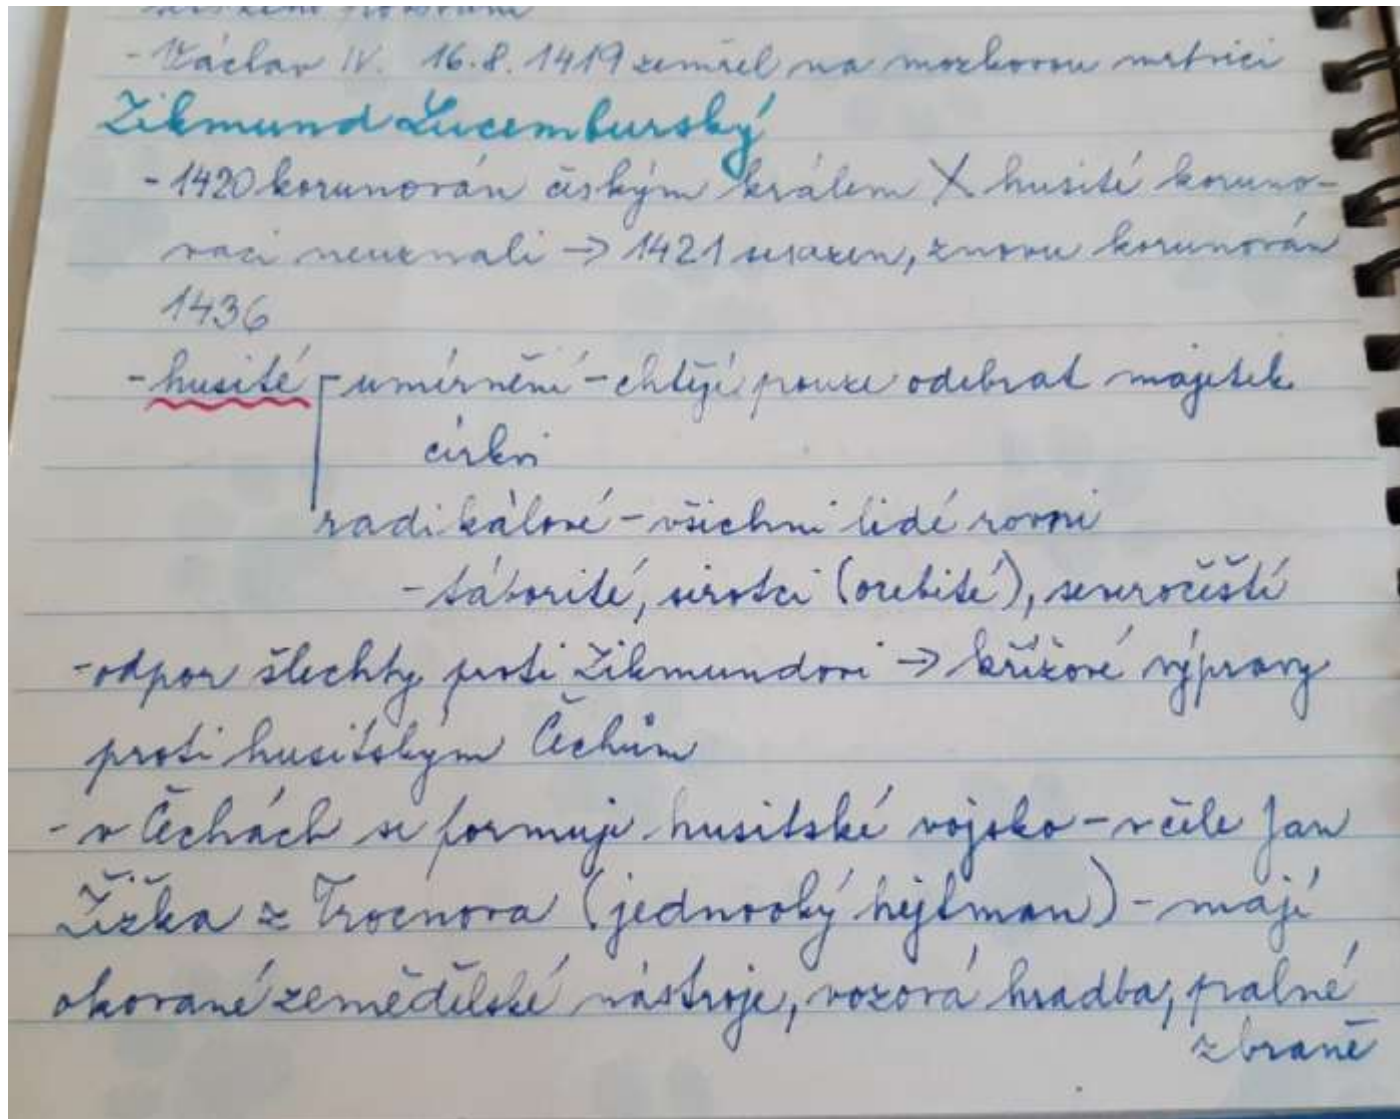 - Václav IV. 16.8.1419 zemřel na mozkovou mrtvici
Zikmund Lucemburský
- 1420 korunován českým králem X husité koruno-
vaci neuznali → 1421 sesazen, znovu korunován
1436
- husité - umírnění - chtějí pouze odebrat majetek
církvi
radikálové - všichni lidé rovni
- táborité, sirotci (orebité), severočeští
- odpor šlechty proti Zikmundovi → křížové výpravy
proti husitským Čechům
- v Čechách se formuje husitské vojsko - v čele Jan
Žižka z Trocnova (jednooký hejtman) - mají
okované zemědělské nástroje, vozová hradba, palné
zbraně